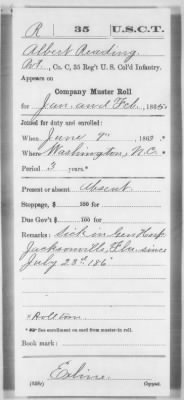 R 35 U.S.C.T.
Albert Reading
Pvt., Co. C, 35 Reg't U. S. Col'd Infantry.
Appears on
Company Muster Roll
for Jan. and Feb., 1865.
Joined for duty and enrolled:
When June 9", 1863.*
Where Washington, N.C.*
Period 3 years.*
Present or absent Absent
Stoppage, $ 100 for
Due Gov't $ 100 for
Remarks: Sick in Gen Hosp.
Jacksonville, Fla. since
July 23d, 186
* See enrollment on card from muster-in roll.
Book mark:
(358c) Copyist.